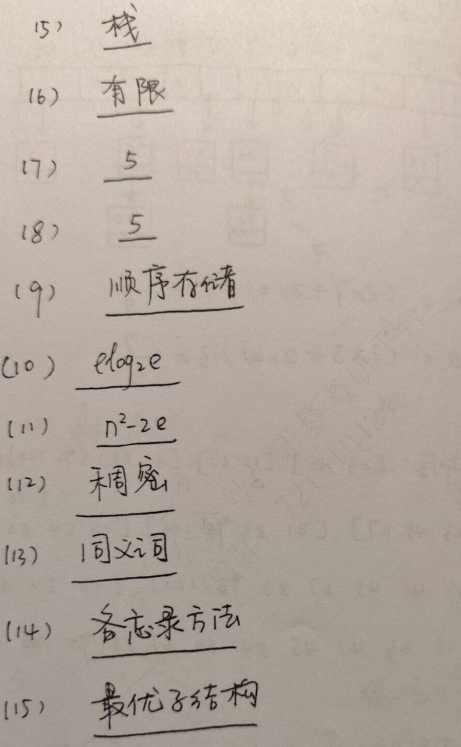 (5) 栈
(6) 有限
(7) 5
(8) 5
(9) 顺序存储
(10) elog₂e
(11) n²-2e
(12) 稠密
(13) 同义词
(14) 备忘录方法
(15) 最优子结构